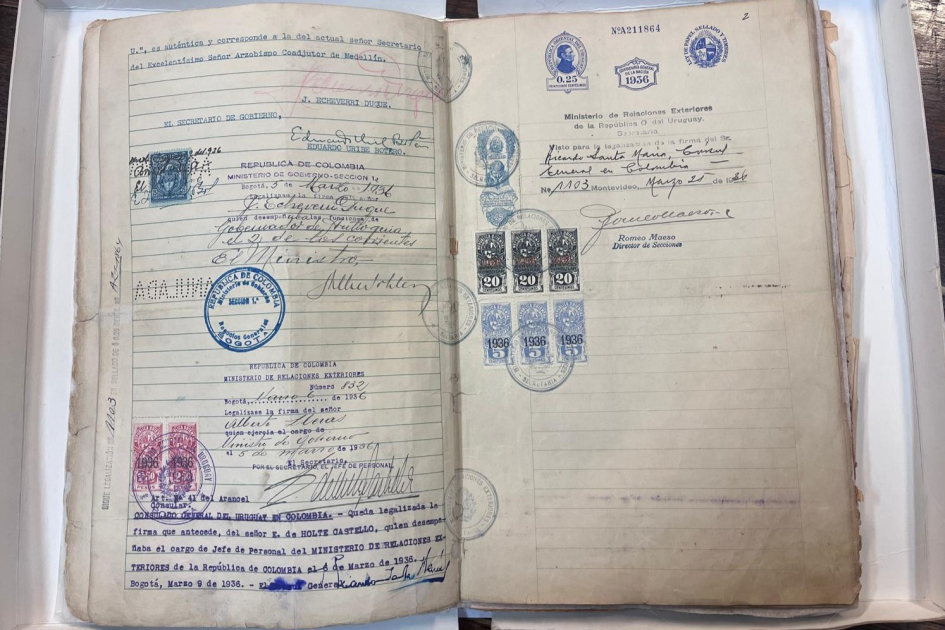 U.", es auténtica y corresponde a la del actual señor Secretario
del Excelentísimo Señor Arzobispo Coadjutor de Medellín.
J. ECHEVERRI DUQUE.
EL SECRETARIO DE GOBIERNO,
EDUARDO URIBE BOTERO.
REPUBLICA DE COLOMBIA
MINISTERIO DE GOBIERNO-SECCION 1a
Bogotá, 5 de Marzo 1936
Legalízase la firma del señor
J. Echeverri Duque
quien desempeñaba las funciones de
Gobernador de Antioquia
el 2 de los corrientes
El Ministro,
REPUBLICA DE COLOMBIA
Ministerio de Gobierno
SECCION 1.ª
Negocios Generales
BOGOTA
REPUBLICA DE COLOMBIA
MINISTERIO DE RELACIONES EXTERIORES
Número 852
Bogotá, Marzo 6 de 1936
Legalízase la firma del señor
Alberto Lleras
quien ejercía el cargo de
Ministro de Gobierno
el 5 de marzo de 1936
El Secretario,
POR EL SECRETARIO, EL JEFE DE PERSONAL
1936 1936
URUGUAY
Art. No 41 del Arancel
Consular.
CONSULADO GENERAL DEL URUGUAY EN COLOMBIA. - Queda legalizada la
firma que antecede, del señor E. de HOLTE CASTELLO, quien desempe-
ñaba el cargo de Jefe de Personal del MINISTERIO DE RELACIONES EX-
TERIORES de la República de COLOMBIA el 6 de Marzo de 1936.
Bogotá, Marzo 9 de 1936. - El General
1103
2
NºA211864
0.25
1936
LEY DE PAPEL SELLADO Y TIMBRES
Ministerio de Relaciones Exteriores
de la República O. del Uruguay.
Secretaría
Visto para la legalización de la firma del Sr.
Ricardo Santa María, Consul
General en Colombia
No 1103 Montevideo, Marzo 25 de 1936
Romeo Maeso
Director de Secciones
20 20 20
1936 1936 1936
5 5 5
SECRETARIA